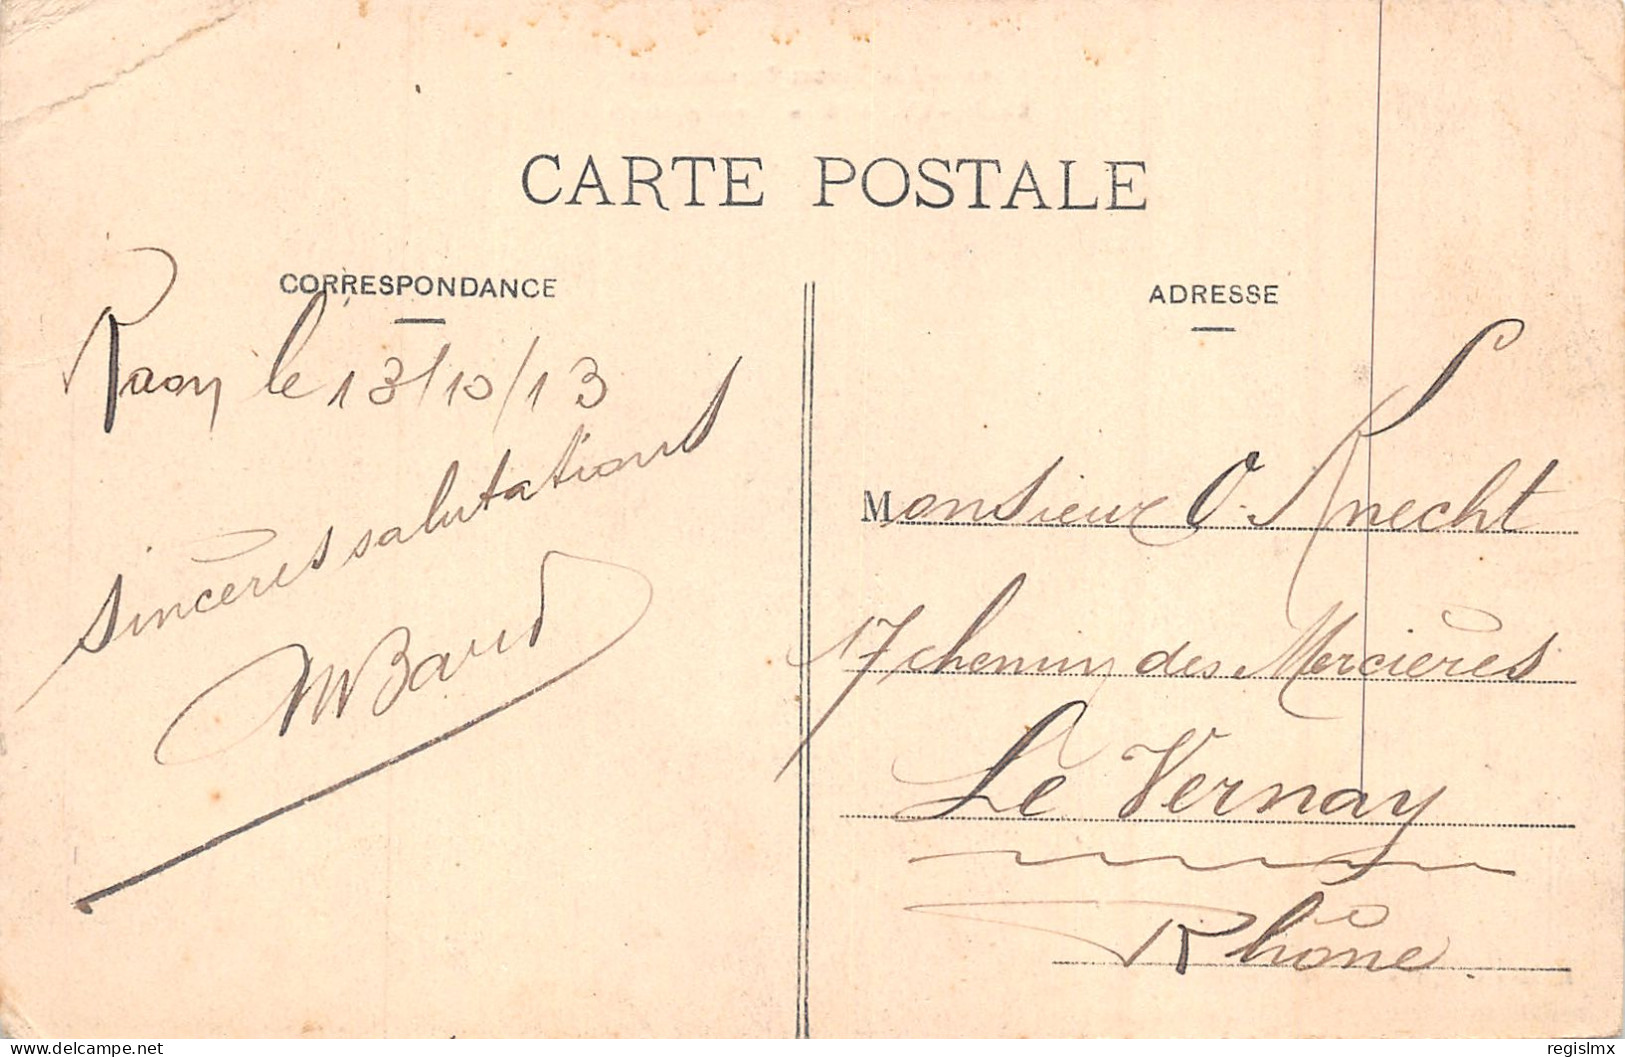 CARTE POSTALE
CORRESPONDANCE
Raon le 13/10/13
sincères salutations
MBaud
ADRESSE
Monsieur O. Knecht
17 chemin des Mercières
Le Vernay
Rhône.
delcampe.net
regislmx